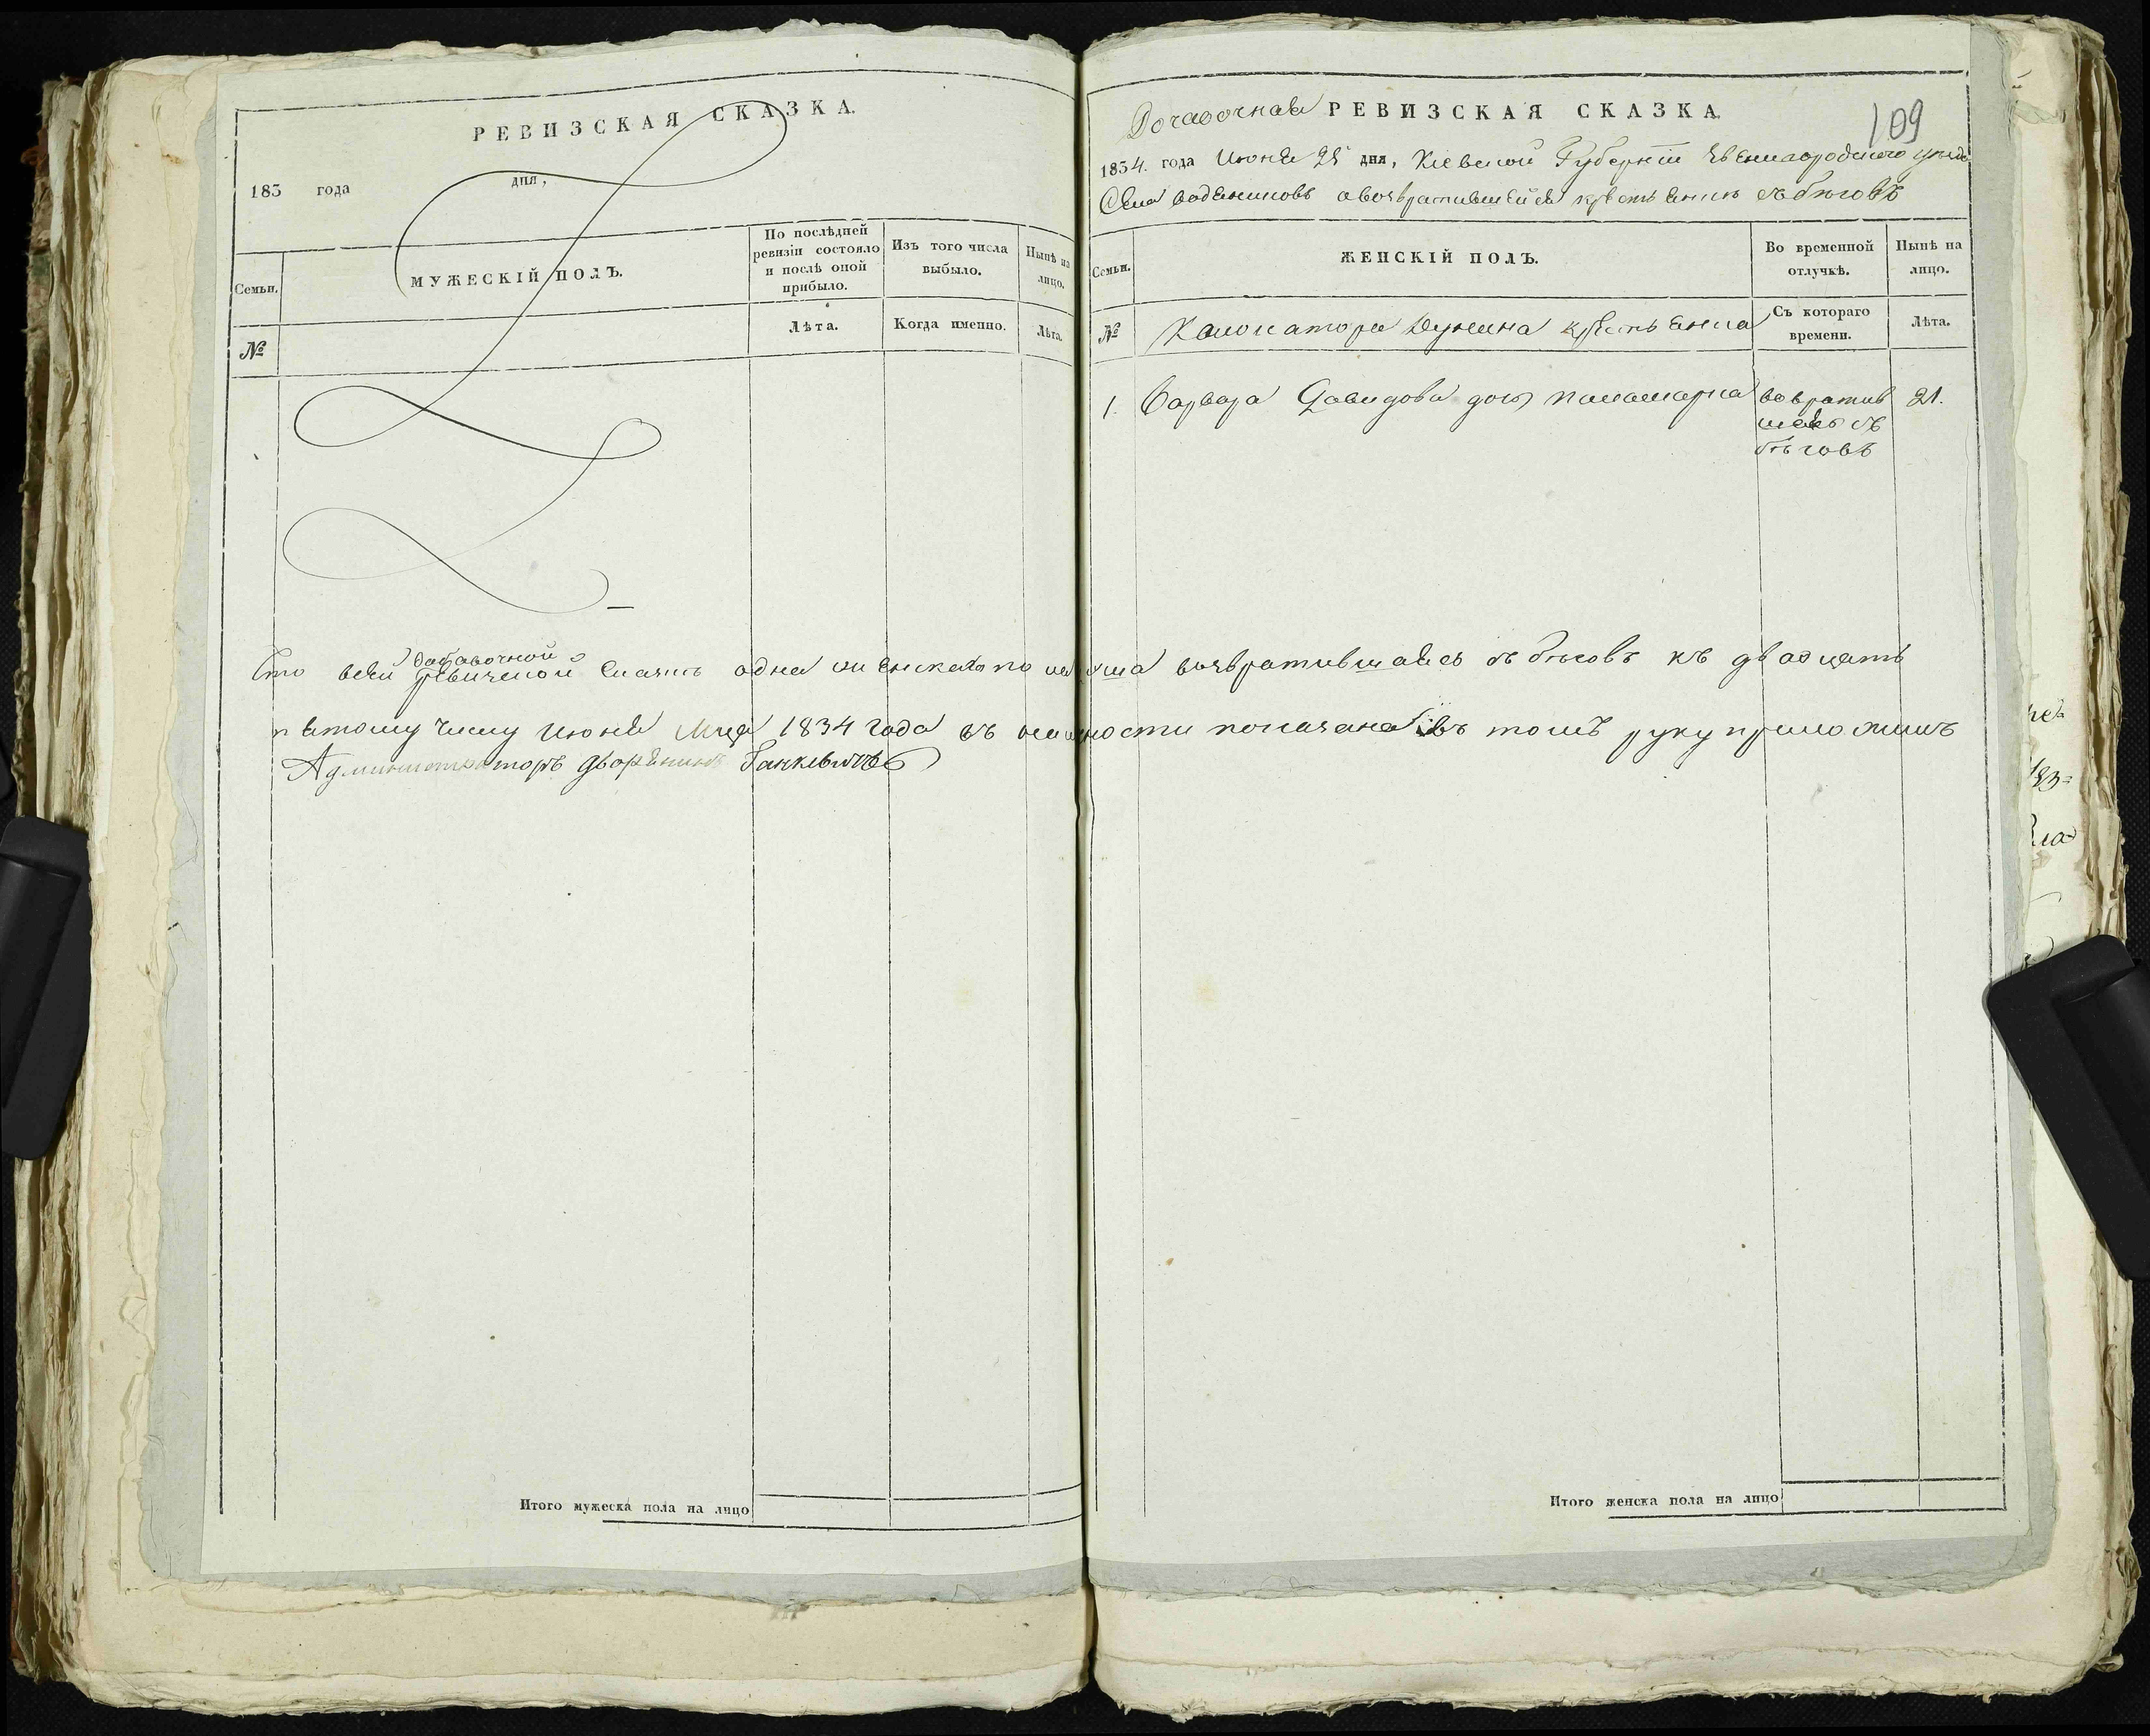 РЕВИЗСКАЯ СКАЗКА.
183 года дня,
Семьи.
МУЖЕСКІЙ ПОЛЪ.
По послѣдней ревизіи состояло и послѣ оной прибыло.
Изъ того числа выбыло.
Нынѣ на лицо.
№
Лѣта.
Когда именно.
Лѣта.
Итого мужеска пола на лицо
109
Добавочная РЕВИЗСКАЯ СКАЗКА.
1834. года Июня 25 дня, Кіевской Губерніи Звенигородского уѣзда
Села Водяниковъ овозвратившейся крестьянкѣ съ бѣговъ
Семьи.
ЖЕНСКІЙ ПОЛЪ.
Во временной отлучкѣ.
Нынѣ на лицо.
№
Дунина крестьянка
Съ котораго времени.
Лѣта.
1. Варвара Давидова дочь Паламарка
возвратив
шаясь съ
бѣговъ
21.
Что всей добавочной ревизской Сказкѣ одна женскаго пола душа возвратившаясь съ бѣговъ къ двадцать
пятому числу Июня Мца 1834 года въ наличности показана въ томъ руку приложилъ
Администраторъ дворянинъ Ганкевичъ
Итого женска пола на лицо